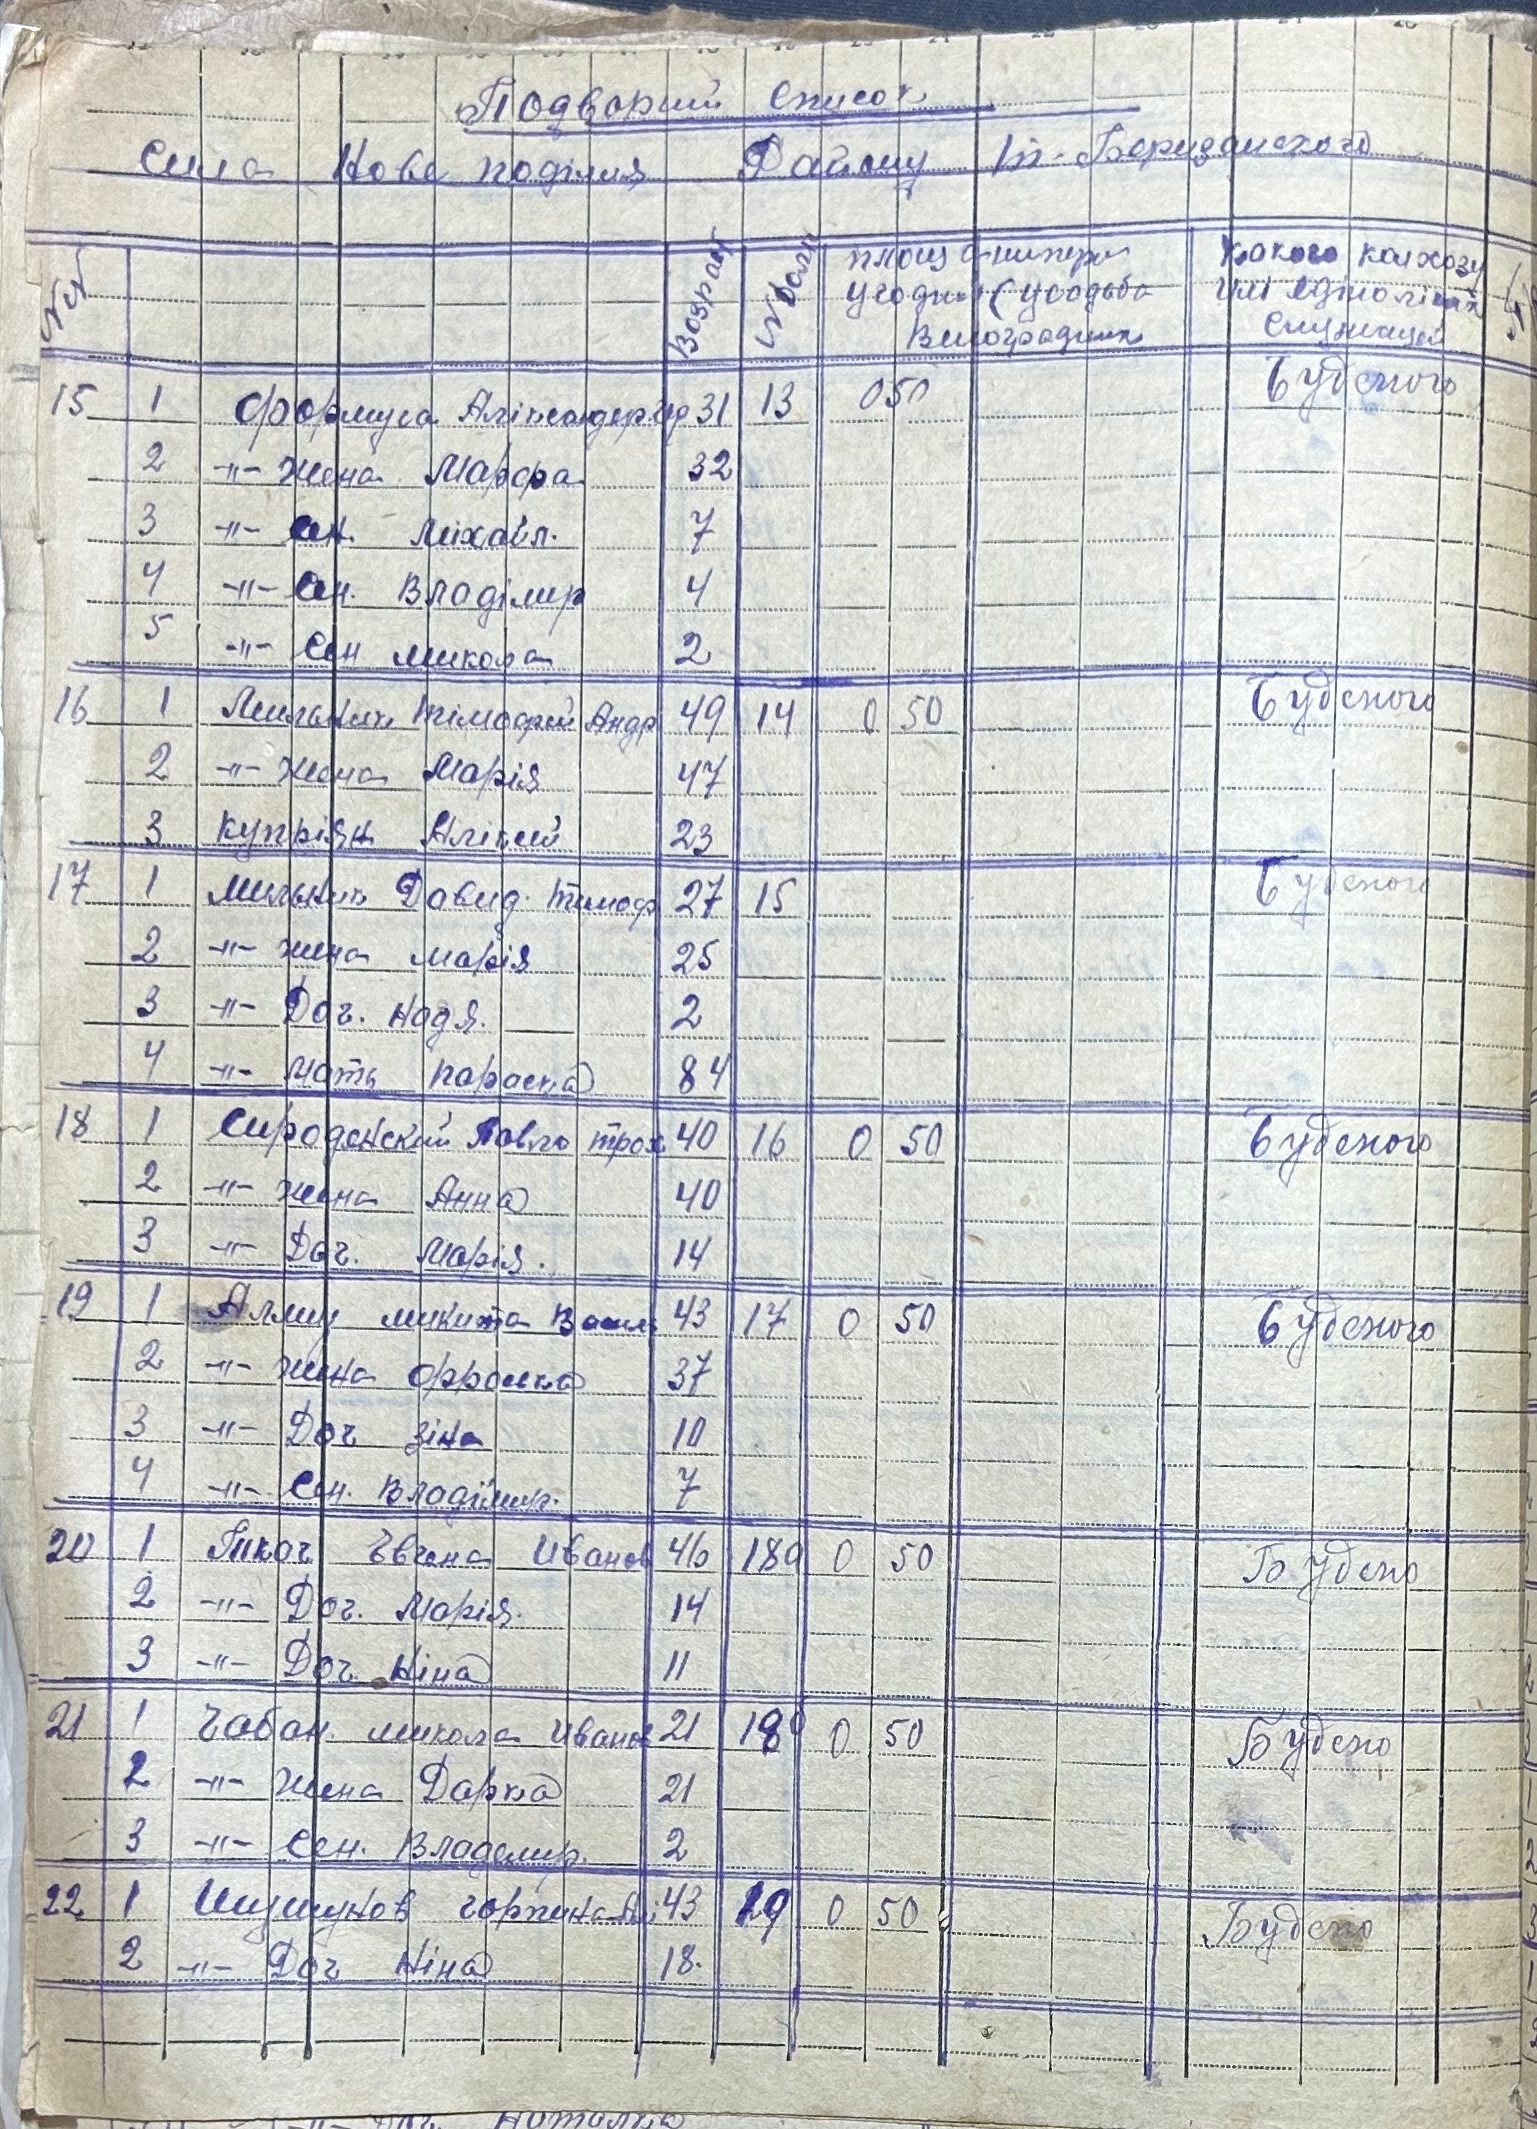 Подворный список
Сила Нове поділля Району Т-Березанского
№№ Возраст № площ
угодия (усодьба
Виноградник
какого колхозу
илі єдінолічник
служащей
15 1 Формуса Аліксандер 31 13 0 50 Буденого
2 -"- Жена Марфа 32
3 -"- Син. Міхаіл. 7
4 -"- Син. Владімир 4
5 -"- Син Микола 2
16 1 Мильник Тімофей Андр 49 14 0 50 Буденого
2 -"- Жена Марія 47
3 Купріян Аліксей 23
17 1 Мильник Давид. Тимоф 27 15 Буденого
2 -"- жена Марія 25
3 -"- Доч. Надя. 2
4 -"- Мать Параска 84
18 1 Сироденский Павло Трох 40 16 0 50 Буденого
2 -"- жена Анна 40
3 -"- Доч. Марія. 14
19 1 Микита Васил 43 17 0 50 Буденого
2 -"- жена Офроська 37
3 -"- Доч Зіна 10
4 -"- Син. Владімир. 7
20 1 Ткач Евгена Иванов 46 18а 0 50 Будено
2 -"- Доч. Марія. 14
3 -"- Доч. Ніна 11
21 1 Чабан. Микола Иванов 21 18 0 50 Будено
2 -"- Жена Дарка 21
3 -"- Син. Владемир. 2
22 1 Шушунов Горпина 43 19 0 50 Будено
2 -"- Доч Ніна 18.
-"- Доч Наталка